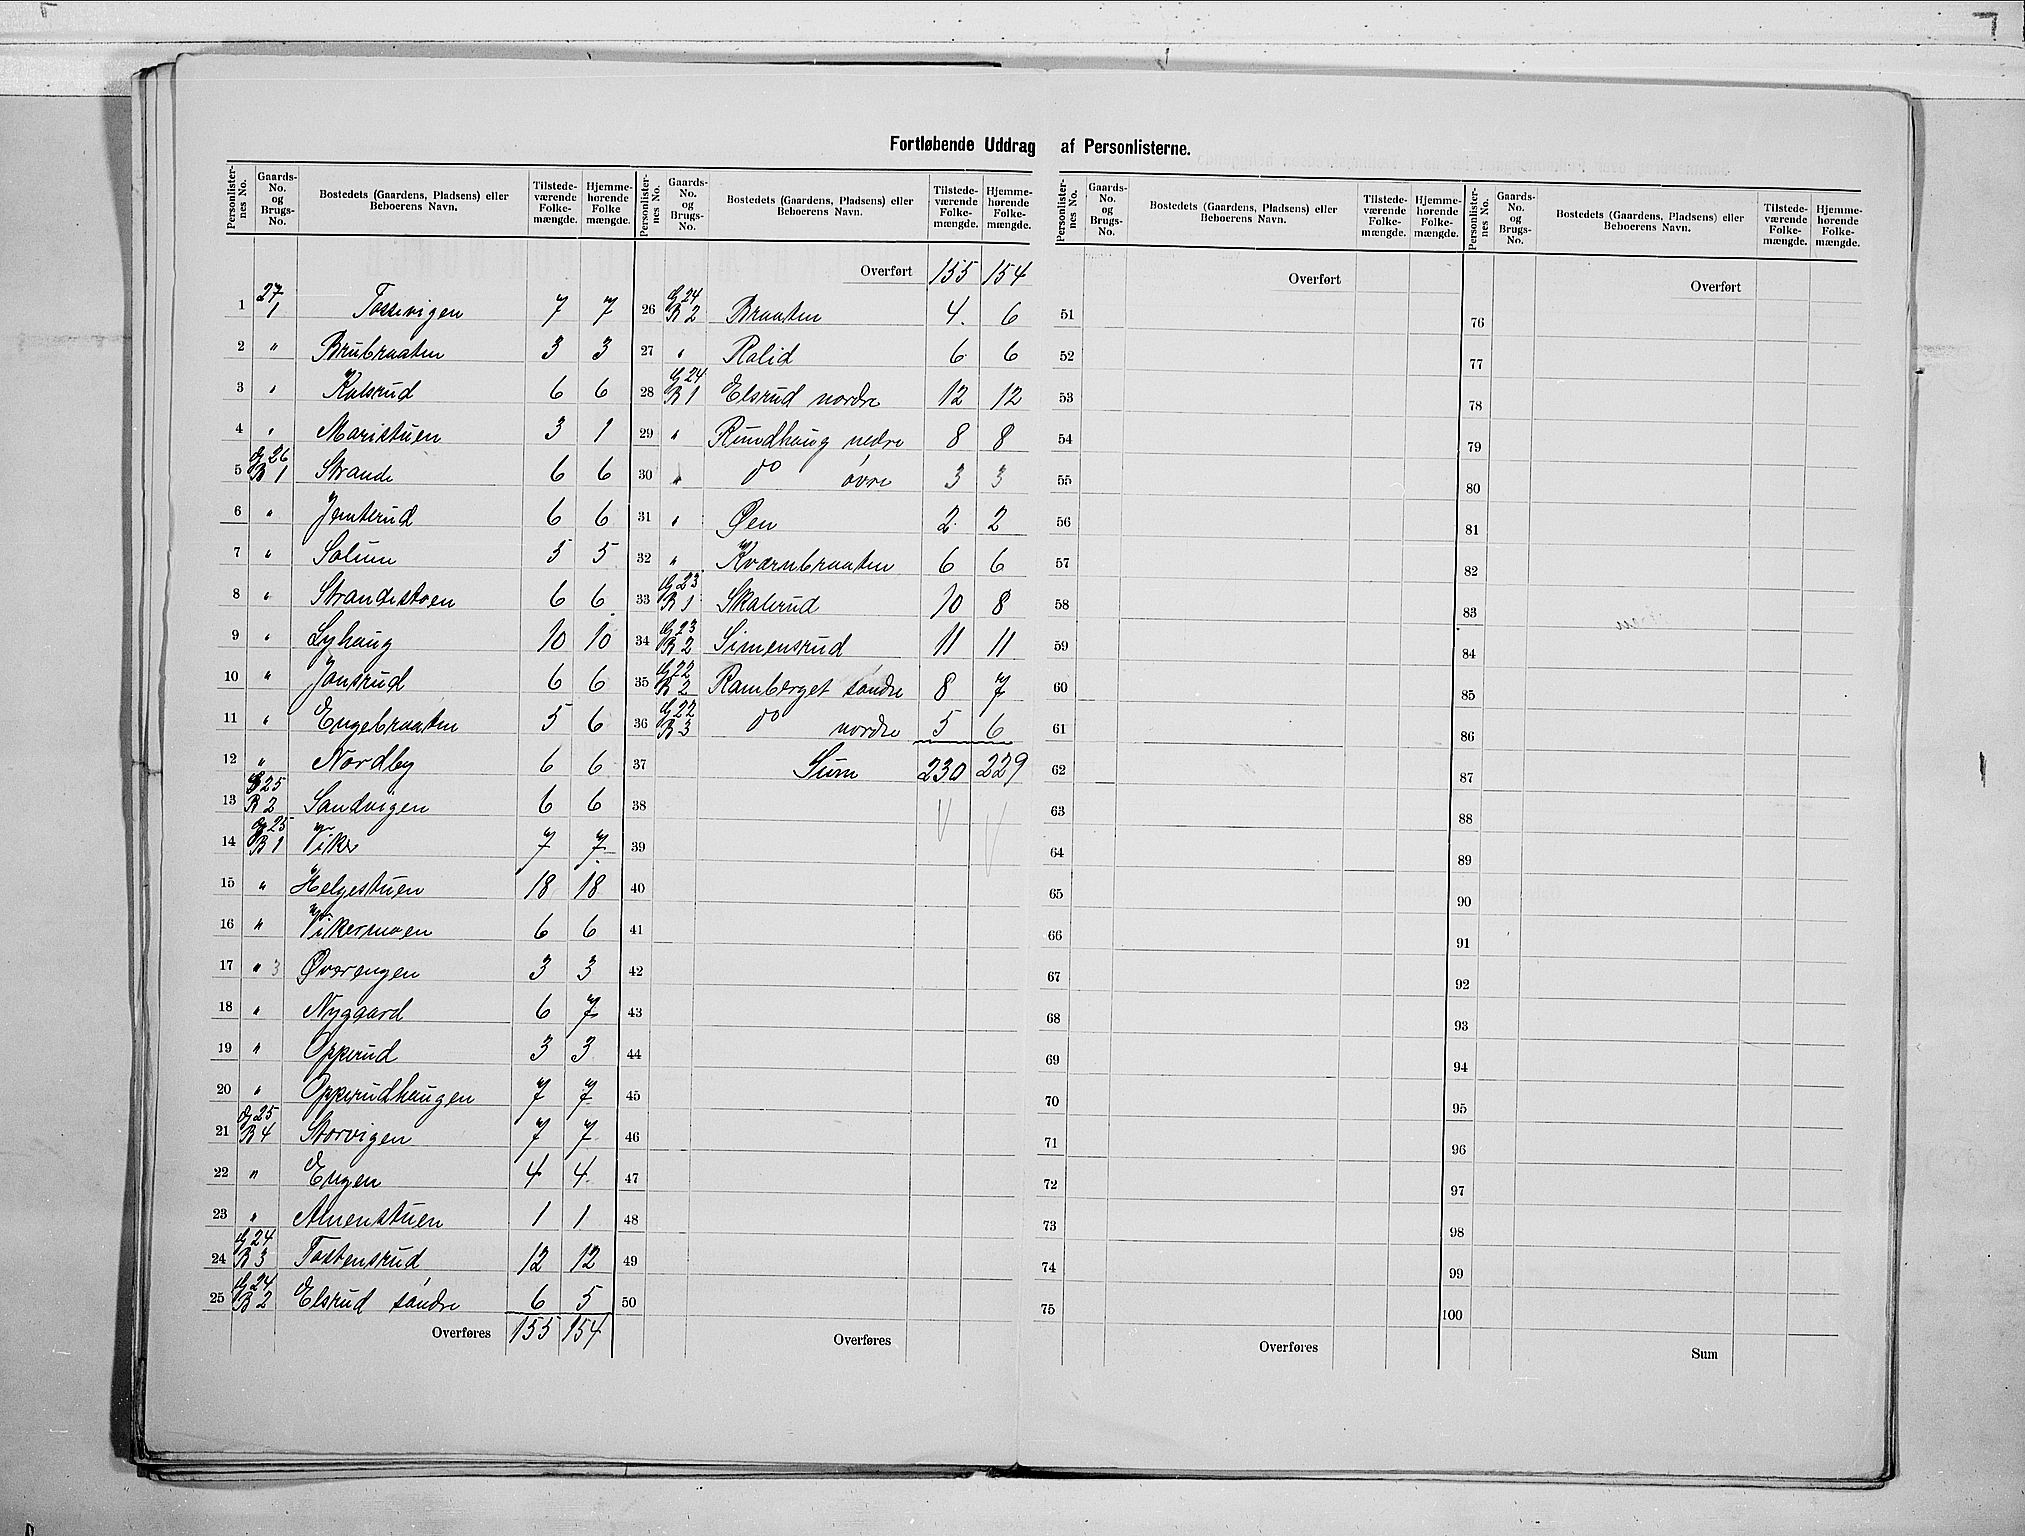 Fortløbende Uddrag af Personlisterne.
Personlister-nes No. Gaards-No. og Brugs-No. Bostedets (Gaardens, Pladsens) eller Beboerens Navn. Tilstede-værende Folke-mængde. Hjemme-hørende Folke mængde.
1 27/1 Tossevigen 7 7
2 " Brubraaten 3 3
3 " Kalsrud 6 6
4 " Maristuen 3 1
5 G 26 B 1 Strande 6 6
6 " Jemterud 6 6
7 " Solum 5 5
8 " Strandestøen 6 6
9 " Lyhaug 10 10
10 " Jonsrud 6 6
11 " Engebraaten 5 6
12 " Nordby 6 6
13 G 25 B 2 Sandvigen 6 6
14 G 25 B 1 Viker 7 7
15 " Helgestuen 18 18
16 " Vikermoen 6 6
17 " 3 Øverengen 3 3
18 " Nygaard 6 7
19 " Opperud 3 3
20 " Opperudhaugen 7 7
21 G 25 B 4 Storvigen 7 7
22 " Engen 4 4
23 " Almenstuen 1 1
24 G 24 B 3 Tostensrud 12 12
25 G 24 B 2 Elsrud søndre 6 5
Overføres 155 154
Personlister-nes No. Gaards-No. og Brugs-No. Bostedets (Gaardens, Pladsens) eller Beboerens Navn. Tilstede-værende Folke-mængde. Hjemme-hørende Folke-mængde.
Overført 155 154
26 G 24 B 2 Braaten 4 6
27 " Ralid 6 6
28 G 24 B 1 Elsrud nordre 12 12
29 " Rundhaug nedre 8 8
30 " do øvre 3 3
31 " Øen 2 2
32 " Kværnbraaten 6 6
33 G 23 B 1 Skalerud 10 8
34 G 23 B 2 Simensrud 11 11
35 G 22 B 2 Ramberget søndre 8 7
36 G 22 B 3 do nordre 5 6
37 Sum 230 229
38
39
40
41
42
43
44
45
46
47
48
49
50
Overføres
Personlister-nes No. Gaards-No. og Brugs-No. Bostedets (Gaardens, Pladsens) eller Beboerens Navn. Tilstede-værende Folke-mængde. Hjemme-hørende Folke-mængde.
Overført
51
52
53
54
55
56
57
58
59
60
61
62
63
64
65
66
67
68
69
70
71
72
73
74
75
Overføres
Personlister-nes No. Gaards-No. og Brugs-No. Bostedets (Gaardens, Pladsens) eller Beboerens Navn. Tilstede-værende Folke-mængde. Hjemme-hørende Folke-mængde.
Overført
76
77
78
79
80
81
82
83
84
85
86
87
88
89
90
91
92
93
94
95
96
97
98
99
100
Sum